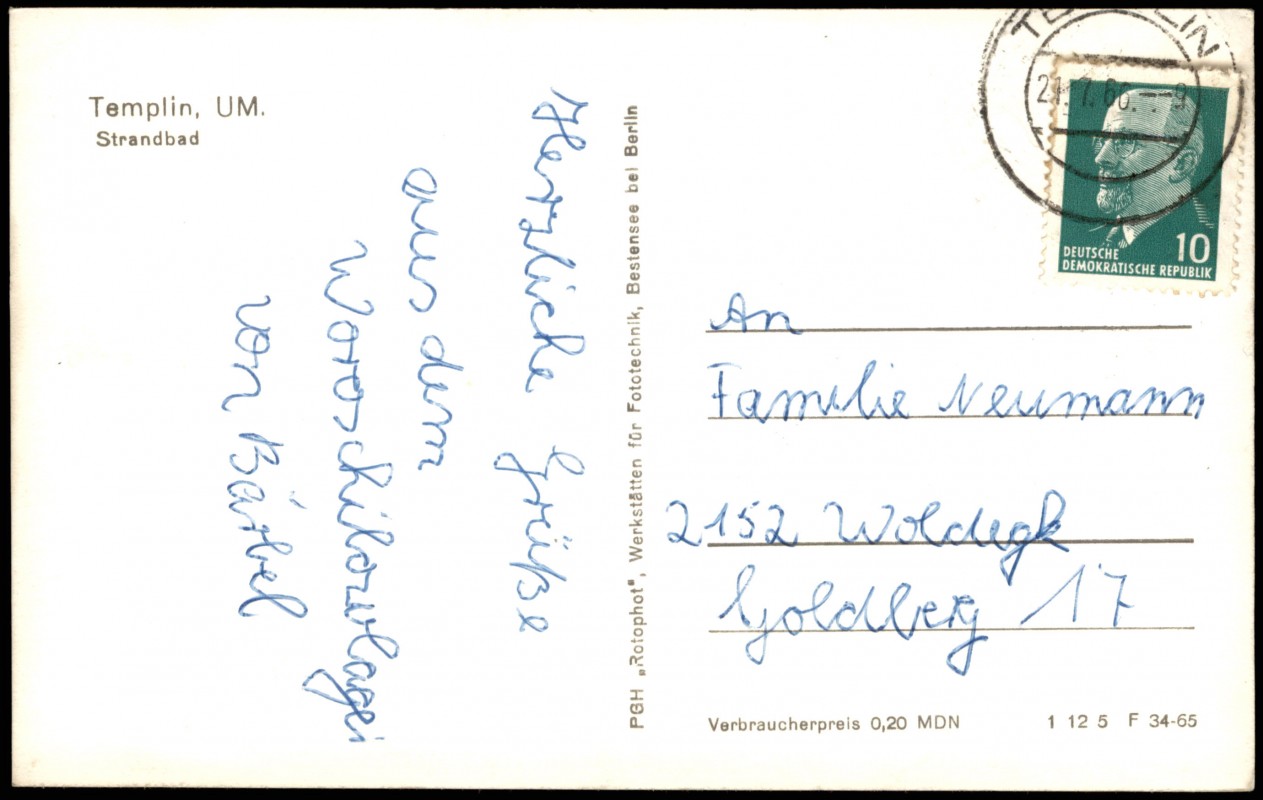 Templin, UM.
Strandbad
Herzliche Grüße
aus dem
von Bärbel
PGH „Rotophot", Werkstätten für Fototechnik, Bestensee bei Berlin
TEMPLIN
21.7.66.--9
DEUTSCHE
DEMOKRATISCHE REPUBLIK
10
An
Familie Neumann
2152 Woldegk
Goldberg 17
Verbraucherpreis 0,20 MDN
1 12 5 F 34-65